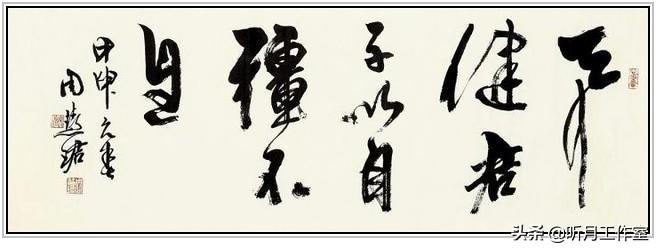 天行
健君
子以自
彊不
息
甲申之春
周慧珺
头条 @听月工作室